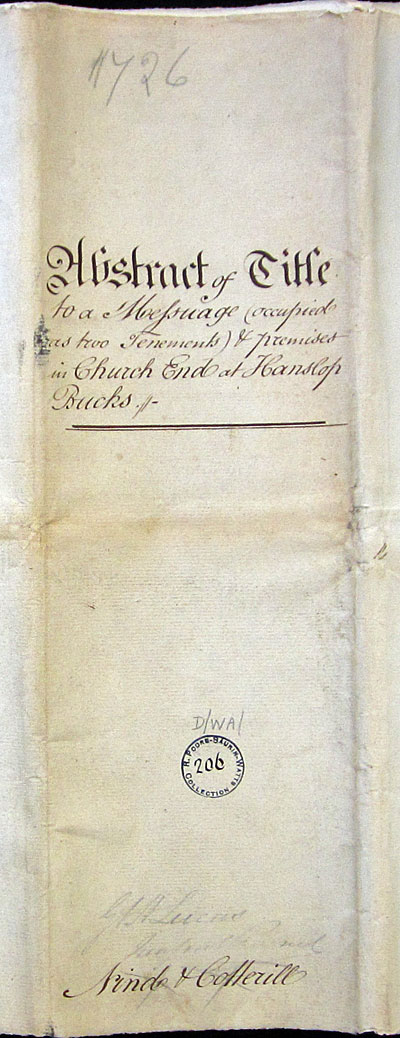 726
Abstract of Title
to a Messuage (occupied
as two Tenements) & premises
in Church End at Hanslop
Bucks
D/WA/
R. POORE-SAURIN-WATTS COLLECTION
206
Lucas
Nind & Cotterill